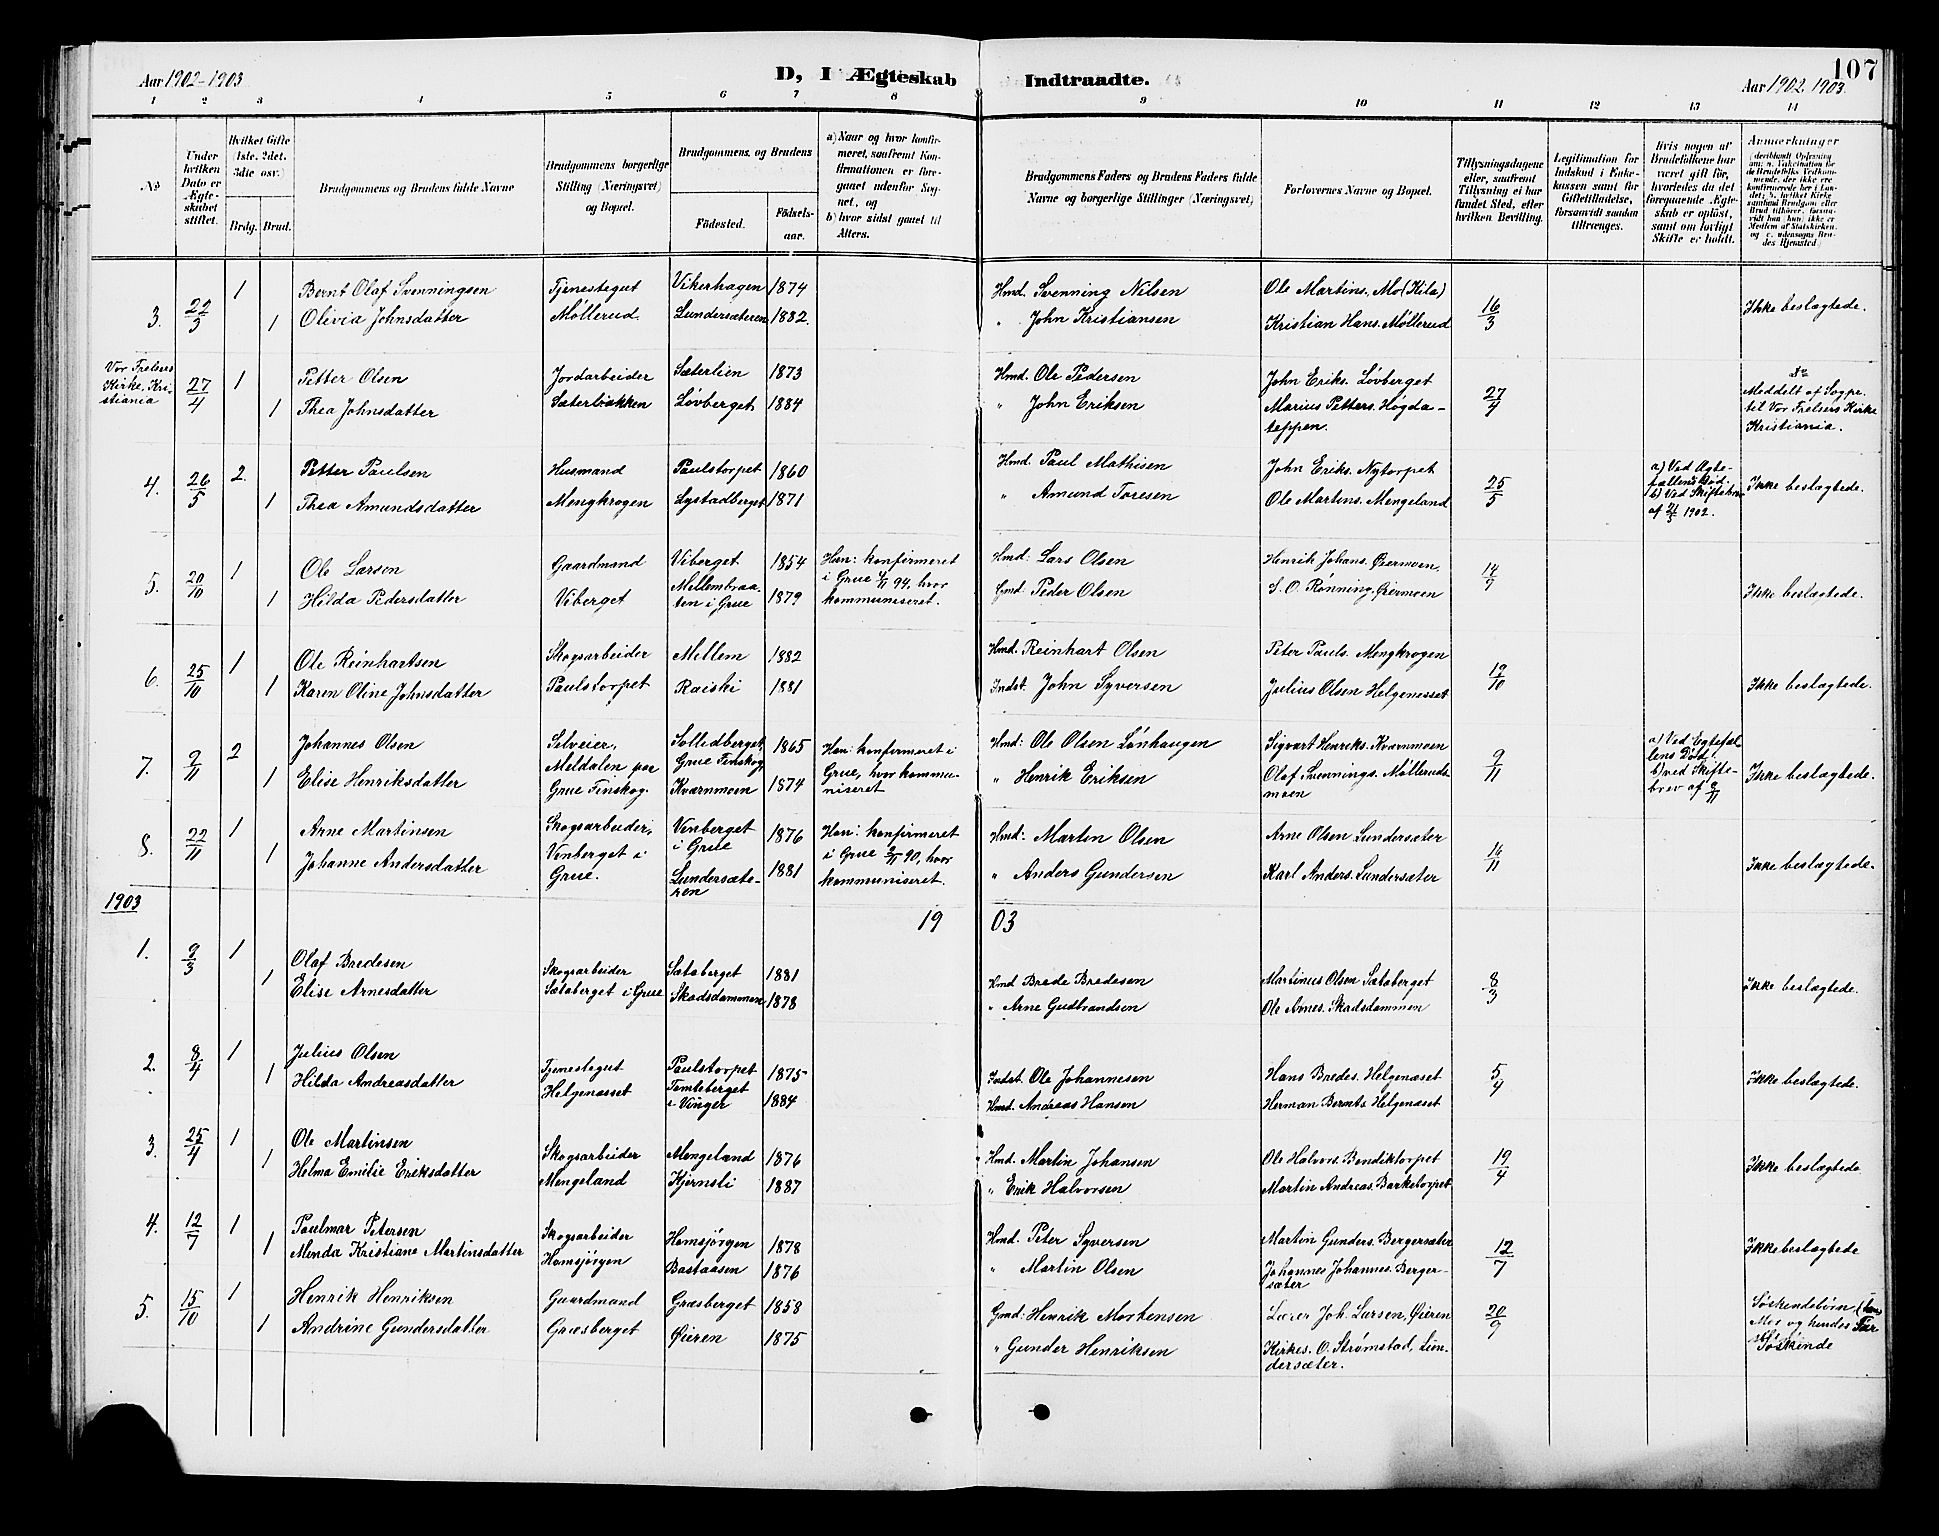 Aar 1902-1903
D, I Ægteskab Indtraadte.
107
Aar 1902. 1903.
1 2 3 4 5 6 7 8 9 10 11 12 13 14
No
Under hvilken Dato er Ægteskabet stiftet.
Hvilket Gifte (1ste. 2det. 3die osv.)
Brdg. Brud.
Brudgommens og Brudens fulde Navne
Brudgommens borgerlige Stilling (Næringsvei) og Bopæl.
Brudgommens og Brudens
Födested.
Födselsaar.
a) Naar og hvor konfirmeret, saafremt Konfirmationen er foregaaet udenfor Sognet, og
b) hvor sidst gaaet til Alters.
Brudgommens Faders og Brudens Faders fulde Navne og borgerlige Stillinger (Næringsvei)
Forlovernes Navne og Bopæl.
Tillysningsdagene eller, saafremt Tillysning ei har fundet Sted, efter hvilken Bevilling.
Legitimation for Indskud i Enkekassen samt for Giftetilladelse, forsaavidt saadan tiltrænges.
Hvis nogen af Brudefolkene har været gift før, hvorledes da det foregaaende Ægteskab er opløst, samt om lovligt Skifte er holdt.
Anmerkninger
3. 22/3 1 Bernt Olaf Svenningsen Tjenestegut Vikerhagen 1874 Hmd. Svenning Nilsen Ole Martins. Mo (Kila) 16/3 Ikke beslægtede.
1 Olivia Johnsdatter Møllerud. Lundersæteren 1882. " John Kristiansen Kristian Hans. Møllerud
Vor Frelsers Kirke, Kristiania 27/4 1 Petter Olsen Jordarbeider Sæterlien 1873 Hmd. Ole Pedersen John Eriks. Løvberget 27/4 Meddelt af Sogpr. til Vor Frelsers Kirke Kristiania.
1 Thea Johnsdatter Sæterbakken Løvberget 1884 " John Eriksen Marius Petters. Høgdateppen.
4. 26/5 2. Petter Paulsen Husmand Paulstorpet 1860 Hmd. Paul Mathisen John Eriks. Nytorpet 25/5 a) Ved Ægtefællens Død. b) Ved Skiftebrev af 21/5 1902. Ikke beslægtede.
1 Thea Amundsdatter Mengkrogen Lystadberget 1871 " Amund Toresen Ole Martins. Mengeland
5. 20/10 1 Ole Larsen Gaardmand Viberget 1854 Han: konfirmeret i Grue 94, hvor kommuniseret. Hmd. Lars Olsen Henrik Johans. Øiermoen. 14/9 Ikke beslægtede.
1 Hilda Pedersdatter Viberget Mellembraaten i Grue 1879 Gmd: Peder Olsen S. O. Rønning. Øiermoen
6. 25/10 1 Ole Reinhartsen Skogsarbeider Mellem 1882 Hmd. Reinhart Olsen Peter Pauls. Mengkrogen 12/10 Ikke beslægtede.
1 Karen Oline Johnsdatter Paulstorpet Raiski 1881 Indst. John Syversen Julius Olsen Helgenæsset
7. 9/11 2 Johannes Olsen Selveier, Meldalen paa Grue Finskog. Sollidberget, Grue Finskog, 1865 Han: konfirmeret i Grue, hvor kommuniseret Hmd: Ole Olsen Lønhaugen Sigvart Henriks. Kvarnmoen 9/11 a) Ved Egtefællens Død. b) ved Skiftebrev af 9/11 Ikke beslægtede.
1 Elise Henriksdatter Kvarnmoen 1874 " Henrik Eriksen Olaf Svennings. Møllerudsmoen
8. 22/11 1 Arne Martinsen Skogsarbeider, Vinberget i Grue. Vinberget i Grue 1876 Han: konfirmeret i Grue 90, hvor kommuniseret. Hmd: Martin Olsen Arne Olsen Lundersæter 16/11 Ikke beslægtede.
1 Johanne Andersdatter Lundersæteren 1881 " Anders Gundersen Karl Anders. Lundersæter
1903
19 03
1. 9/3 1 Olaf Bredesen Skogsarbeider Sætaberget 1881 Hmd Brede Bredesen Martinus Olsen Sætaberget 8/3 ikke beslægtede.
1 Elise Arnesdatter Sætaberget i Grue Skadsdammen 1878 " Arne Gudbrandsen Ole Arnes. Skadsdammen
2. 8/4 1 Julius Olsen Tjenestegut Paulstorpet 1875 Indst. Ole Johannesen Hans Bredes. Helgenæset 5/4 Ikke beslægtede.
1 Hilda Andreasdatter Helgenæsset Tomteberget i Vinger 1884 Hmd. Andreas Hansen Herman Bernts. Helgenæset
3. 25/4 1 Ole Martinsen Skogsarbeider Mengeland 1876 Hmd. Martin Johansen Ole Halvors. Bendiktorpet 19/4 Ikke beslægtede
1 Helma Emilie Eriksdatter Mengeland Kjernsli 1887 " Erik Halvorsen Martin Andreas. Barketorpet
4. 12/7 1 Paulmar Petersen Skogsarbeider Homsjørgen 1878 Hmd. Peter Syversen Martin Gunders. Bergersæter 12/7 Ikke beslægtede
1 Menda Kristiane Martinsdatter Homsjørgen Bastaasen 1876 " Martin Olsen Johannes Johannes. Bergersæter
5. 15/10 1 Henrik Henriksen Gaardmand Græsberget 1858 Gmd: Henrik Mortensen Lærer Joh. Larsen, Øieren 20/9 Søskendebörn, (hans Mor og hendes Far Søskende
1 Andrine Gundersdatter Græsberget Øieren 1875 " Gunder Henriksen Kirkes. O. Strømstad, Lundersæter.